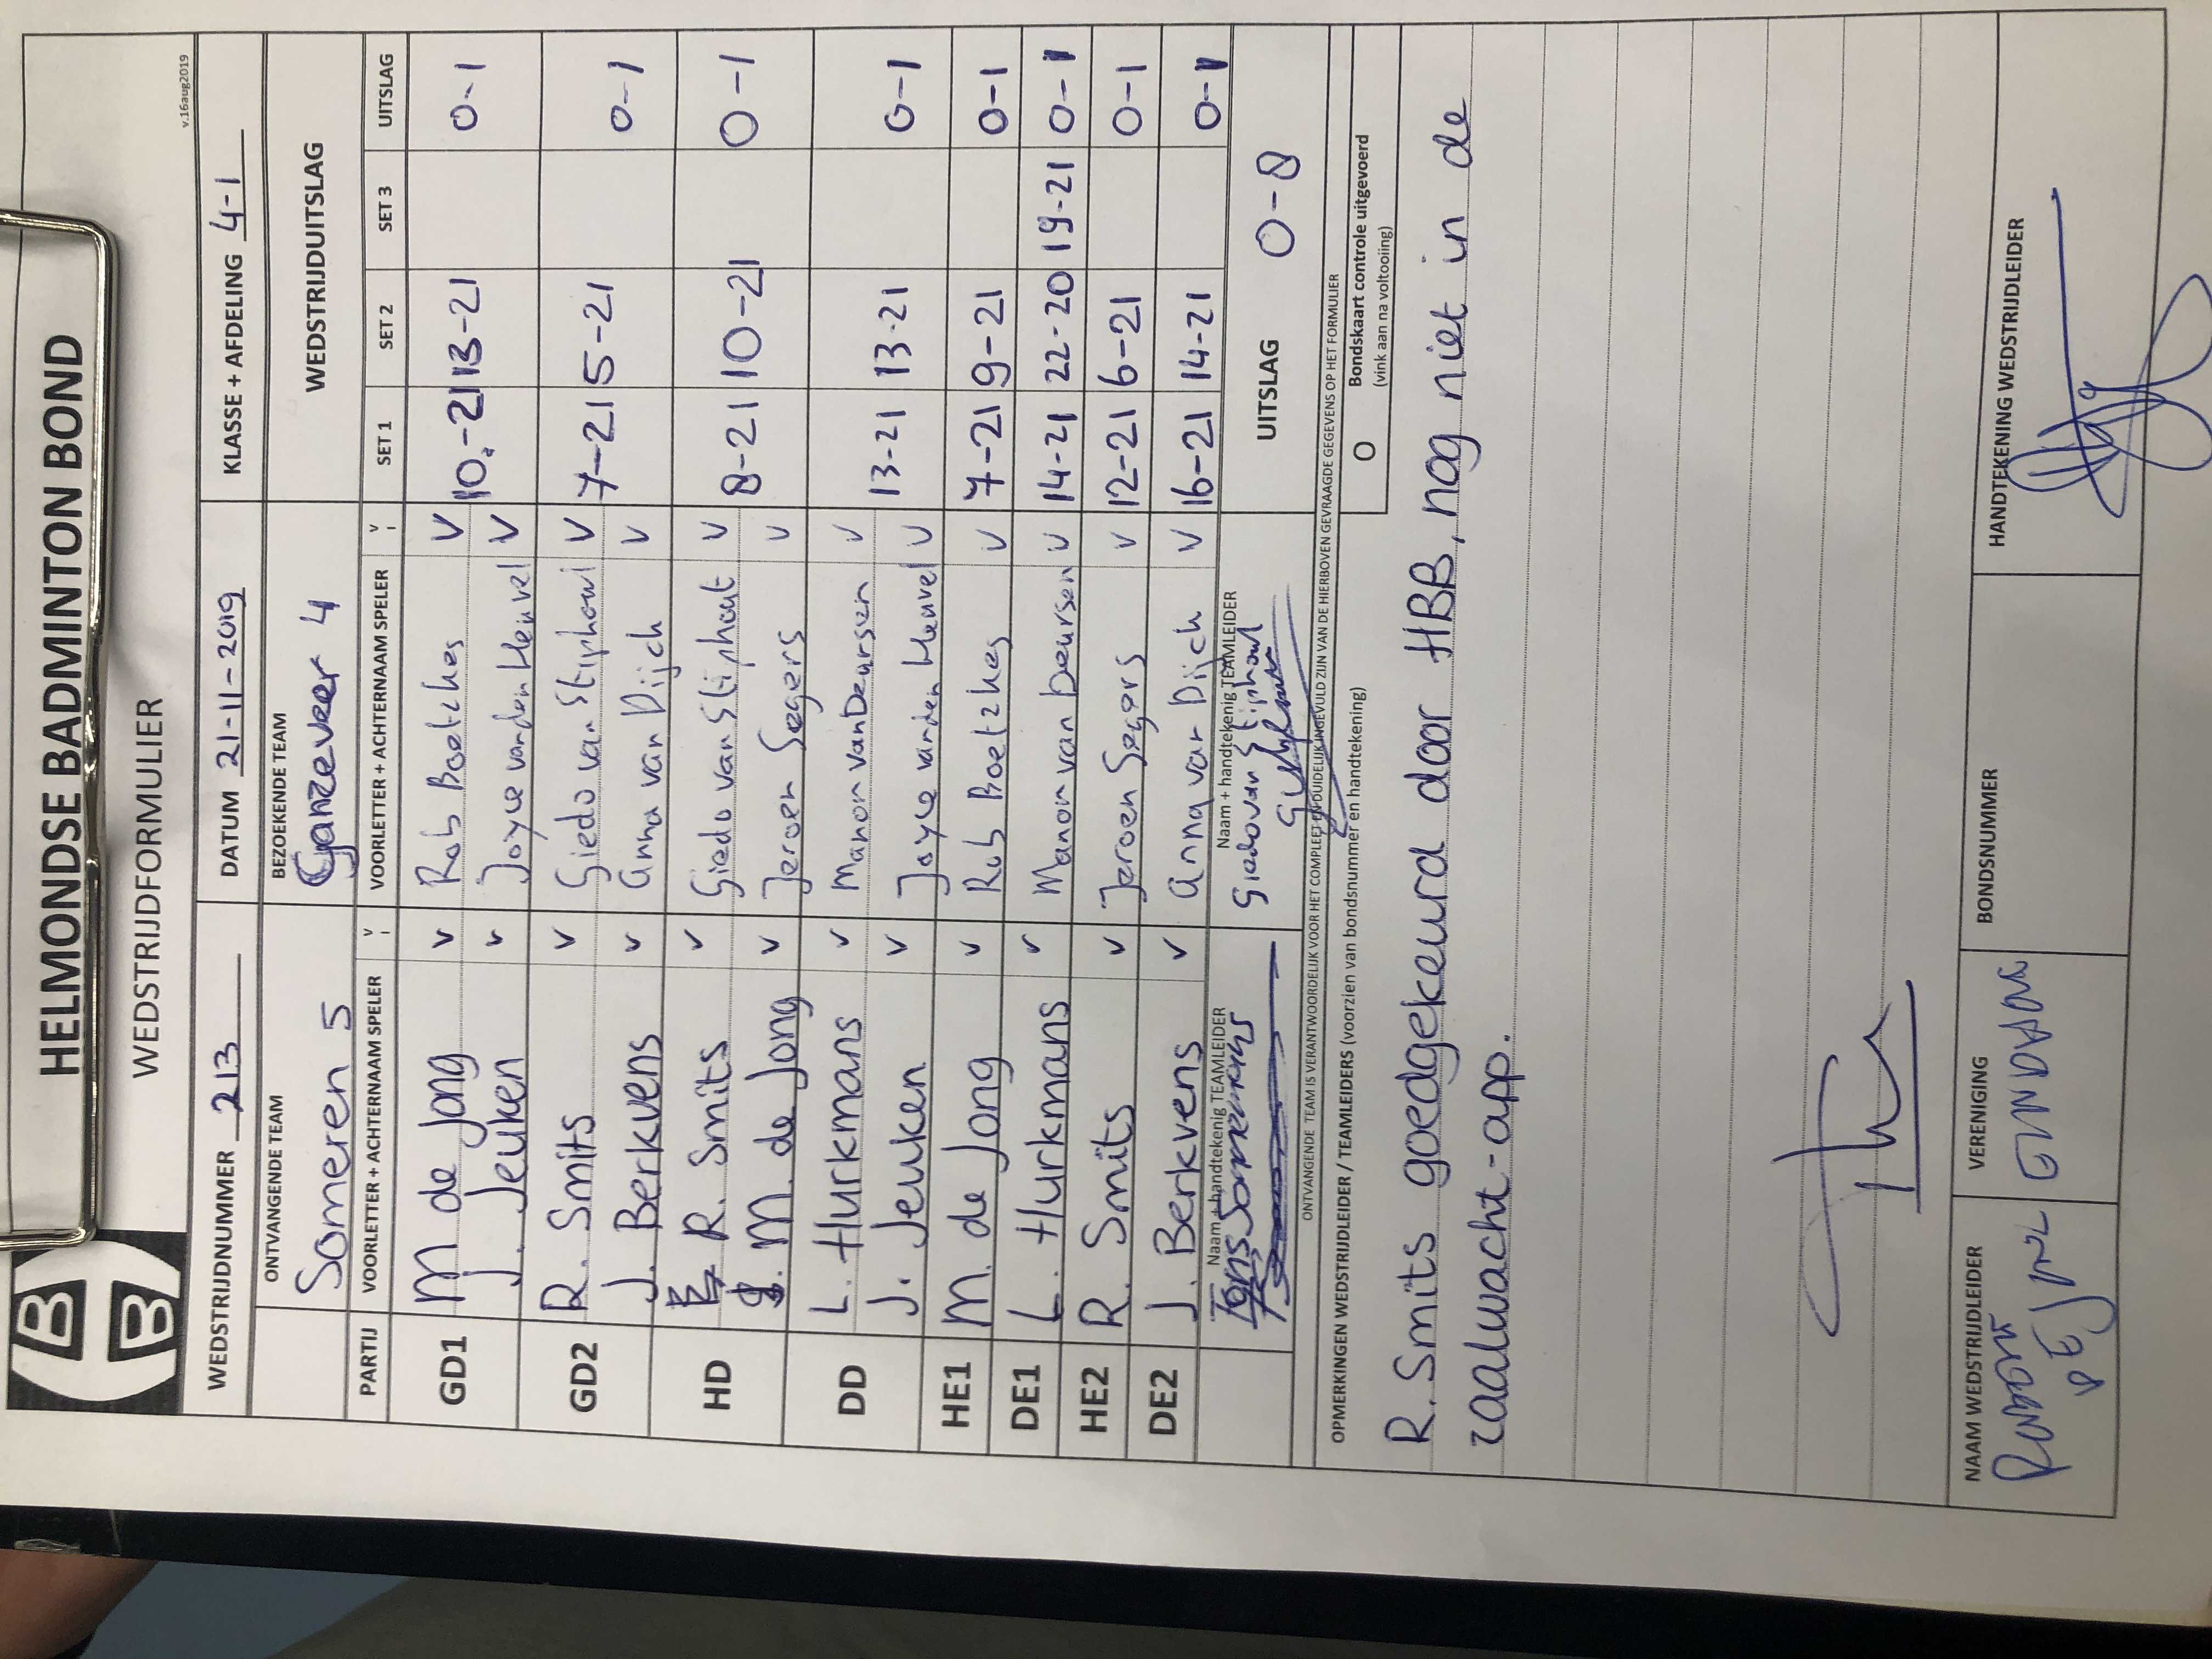 HELMONDSE BADMINTON BOND
WEDSTRIJDFORMULIER
v.16aug2019
WEDSTRIJDNUMMER 213 DATUM 21-11-2019 KLASSE + AFDELING 4-1
ONTVANGENDE TEAM BEZOEKENDE TEAM WEDSTRIJDUITSLAG
Someren 5 Ganzeveer 4
PARTIJ VOORLETTER + ACHTERNAAM SPELER V VOORLETTER + ACHTERNAAM SPELER V SET 1 SET 2 SET 3 UITSLAG
GD1 M de Jong v Rob Boetzkes v 10-21 13-21 0-1
J. Jeuken v Joyce van den Heuvel v
GD2 R. Smits v Giedo van Stiphout v 7-21 5-21 0-1
J. Berkvens v Anna van Dijck v
HD R. Smits v Giedo van Stiphout v 8-21 10-21 0-1
M. de Jong v Jeroen Segers v
DD L. Hurkmans v Manon van Deursen v 13-21 13-21 0-1
J. Jeuken v Joyce van den Heuvel v
HE1 M. de Jong v Rob Boetzkes v 7-21 9-21 0-1
DE1 L. Hurkmans v Manon van Deursen v 14-21 22-20 19-21 0-1
HE2 R. Smits v Jeroen Segers v 12-21 6-21 0-1
DE2 J. Berkvens v Anna van Dijck v 16-21 14-21 0-1
Naam + handtekenig TEAMLEIDER Naam + handtekenig TEAMLEIDER UITSLAG 0-8
Giedo van Stiphout
ONTVANGENDE TEAM IS VERANTWOORDELIJK VOOR HET COMPLEET EN DUIDELIJK INGEVULD ZIJN VAN DE HIERBOVEN GEVRAAGDE GEGEVENS OP HET FORMULIER
OPMERKINGEN WEDSTRIJDLEIDER / TEAMLEIDERS (voorzien van bondsnummer en handtekening)
O Bondskaart controle uitgevoerd
(vink aan na voltooiing)
R. Smits goedgekeurd door HBB, nog niet in de
zaalwacht-app.
NAAM WEDSTRIJDLEIDER VERENIGING BONDSNUMMER HANDTEKENING WEDSTRIJDLEIDER